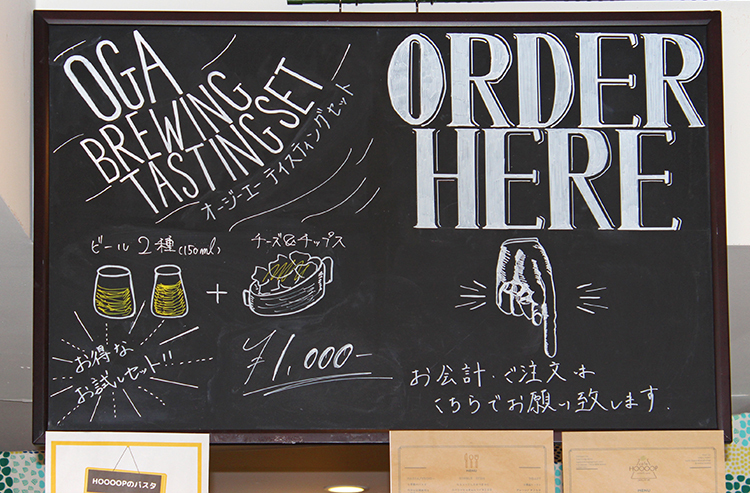 OGA
BREWING
TASTING SET
オージーエー テイスティングセット
ビール 2種(150ml)
チーズ&チップス
+
お得な
お試しセット!!
¥1,000-
ORDER
HERE
お会計・ご注文は
こちらでお願い致します.
HOOOOPのパスタ
HOOOOP